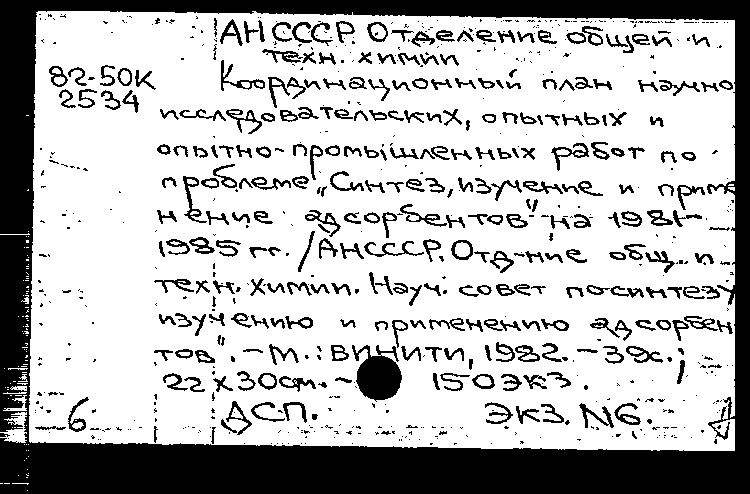 АН СССР. Отделение общей и
техн. химии
82-50К
2534
Координационный план научно
исследовательских, опытных и
опытно-промышленных работ по
проблеме „Синтез, изучение и приме
нение адсорбентов" на 1981-
1985 гг. / АН СССР. Отд-ние общ. и
техн. химии. Науч. совет по синтезу
изучению и применению адсорбен
тов". - М.: ВИНИТИ, 1982. - 39с.;
22 х 30см. - 150 экз.
6 ДСП. Экз. N6.